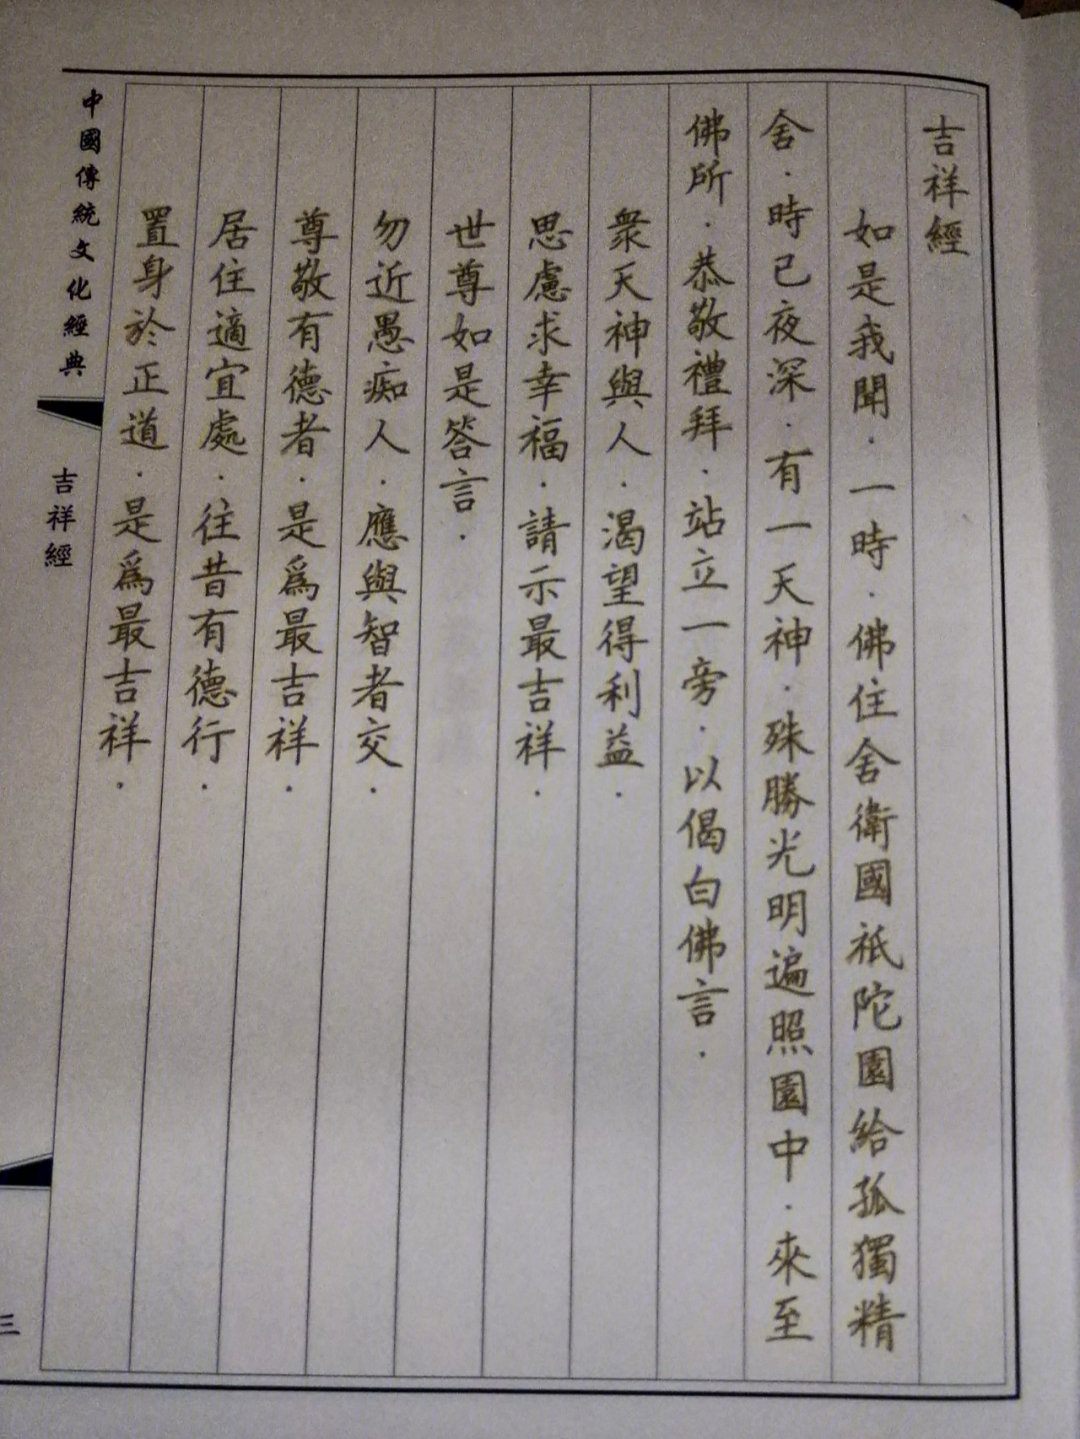 吉祥經
如是我聞．一時．佛住舍衛國祇陀園給孤獨精
舍．時已夜深．有一天神．殊勝光明遍照園中．來至
佛所．恭敬禮拜．站立一旁．以偈白佛言．
衆天神與人．渴望得利益．
思慮求幸福．請示最吉祥．
世尊如是答言．
勿近愚痴人．應與智者交．
尊敬有德者．是爲最吉祥．
居住適宜處．往昔有德行．
置身於正道．是爲最吉祥．
中國傳統文化經典
吉祥經
三